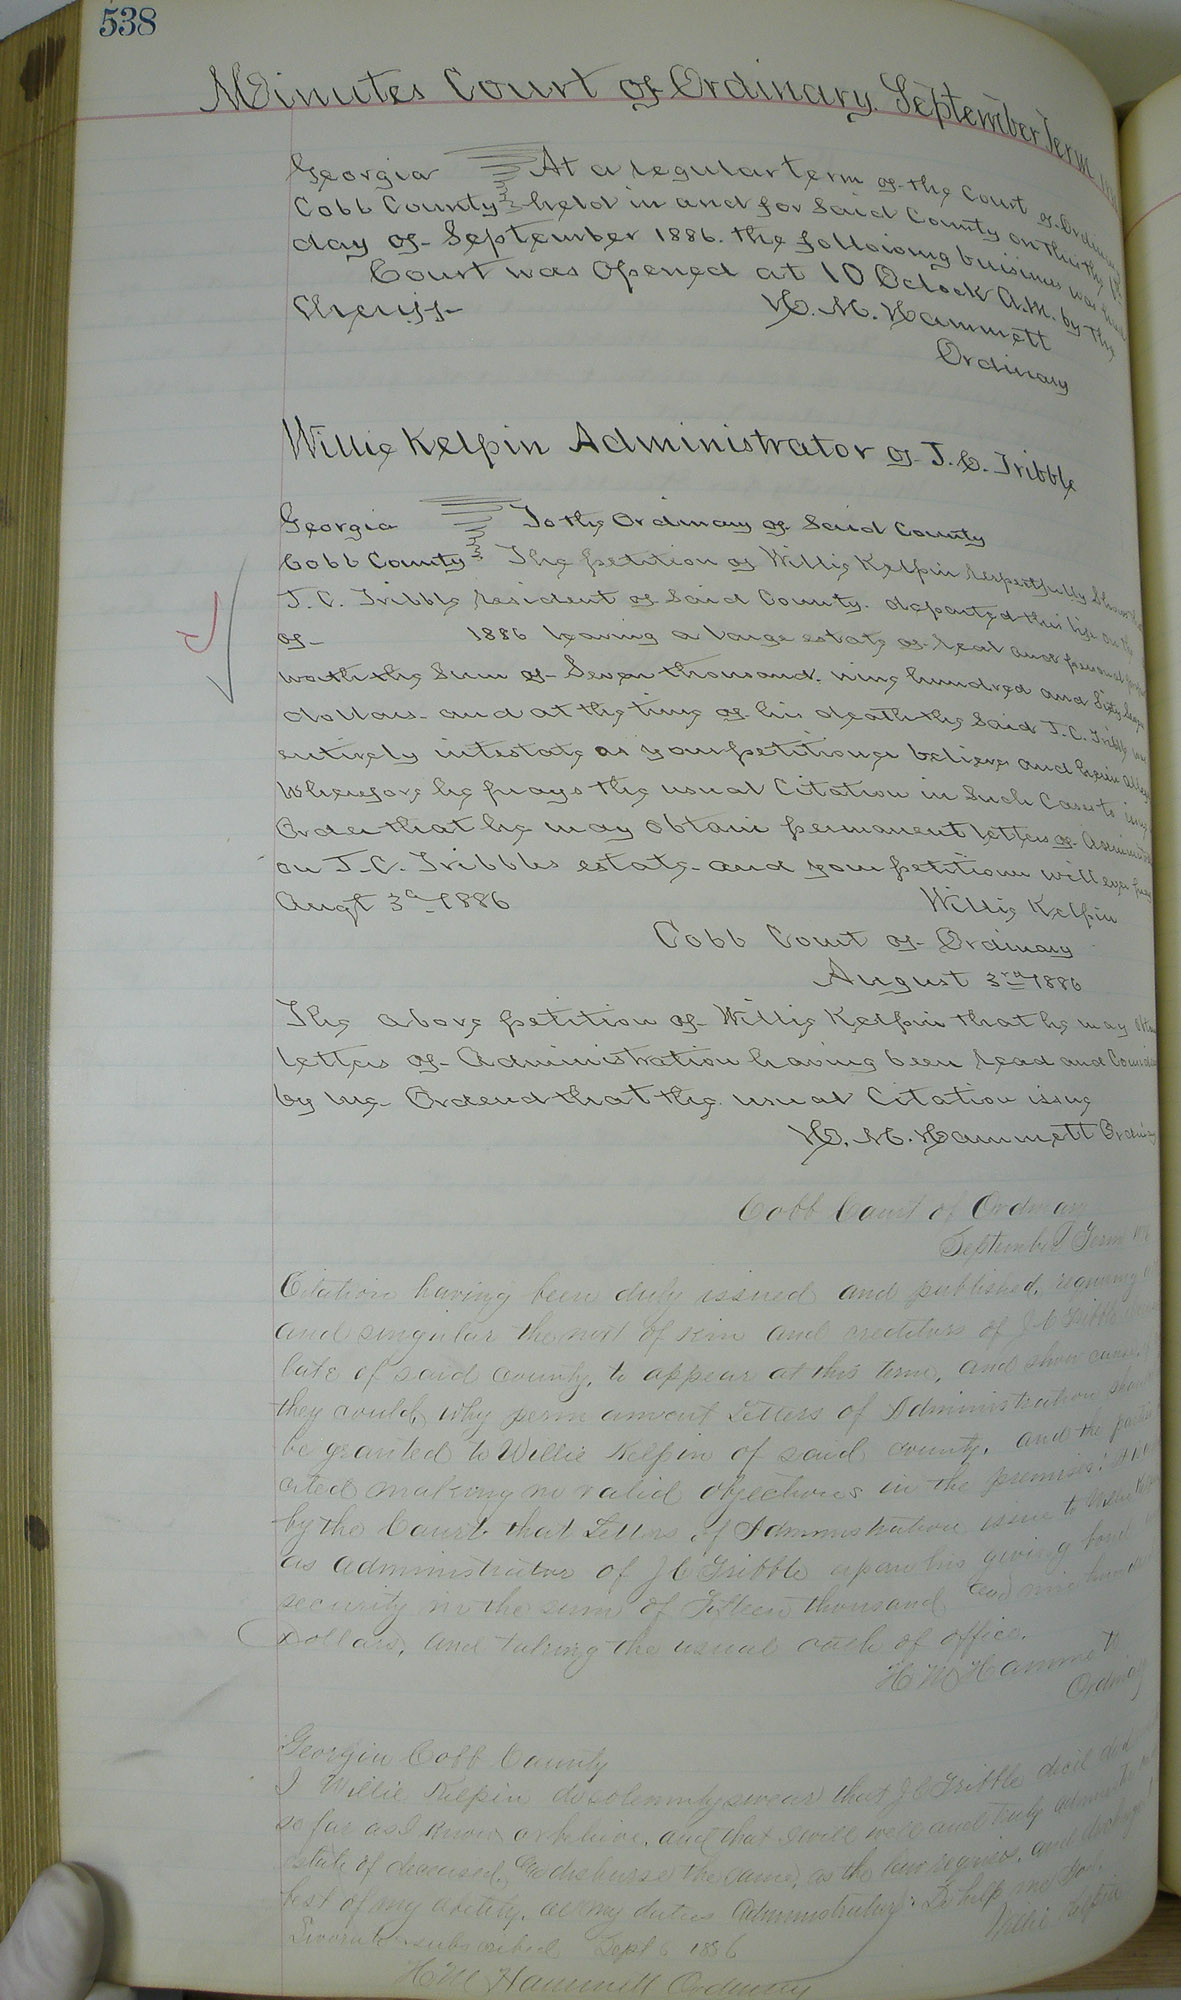 538
Minutes Court of Ordinary. September Term
Georgia At a regular term of the Court of Ordinary
Cobb County held in and for Said County on this the
day of September 1886. the following buisiness was
Court was Opened at 10 Oclock A.M. by the
Sheriff
H. M. Hammett
Ordinary
Willie Kelpin Administrator of J. C. Tribble
Georgia To the Ordinary of Said County
Cobb County The petition of Willie Kelpin Respectfully Shows that
J. C. Tribble resident of Said County. departed this life on the
of 1886 leaving a large estate of real and personal
worth the Sum of Seven thousand. nine hundred and Sixty
dollars. and at the time of his death the Said J. C. Tribble
entirely intestate as your petitioner believes and herein
Wherefore he prays the usual Citation in Such Cases to
Order that he may obtain permanent letters of
on J. C. Tribbles estate. and your petitioner will ever pray
Augt 3d 1886 Willie Kelpin
Cobb Court of Ordinary
August 3rd 1886
The above petition of Willie Kelpin that he may
letters of Administration having been read and
by me. Ordered that the usual Citation issue
H. M. Hammett
Cobb Court of Ordinary
September Term
Citation having been duly issued and published, requiring
and singular the next of kin and creditors of J C Tribble
late of said county, to appear at this term, and show cause
they could, why permanent Letters of Administration should
be granted to Willie Kelpin of said county, and the parties
cited making no valid objections in the premises.
by the Court that Letters of Administration issue to Willie
as administrator of J C Tribble upon his giving bond
security in the sum of Fifteen thousand and nine
Dollars, and taking the usual oath of office.
H M Hammett
Ordinary
Georgia Cobb County
I Willie Kelpin do solemnly swear that J C Tribble decd
so far as I know or believe, and that I will well and truly
estate of deceased, & disburse the same, as the law requires, and
best of my ability, all my duties So help me God.
Willie Kelpin
Sworn & subscribed Sept 6 1886
H M Hammett Ordinary